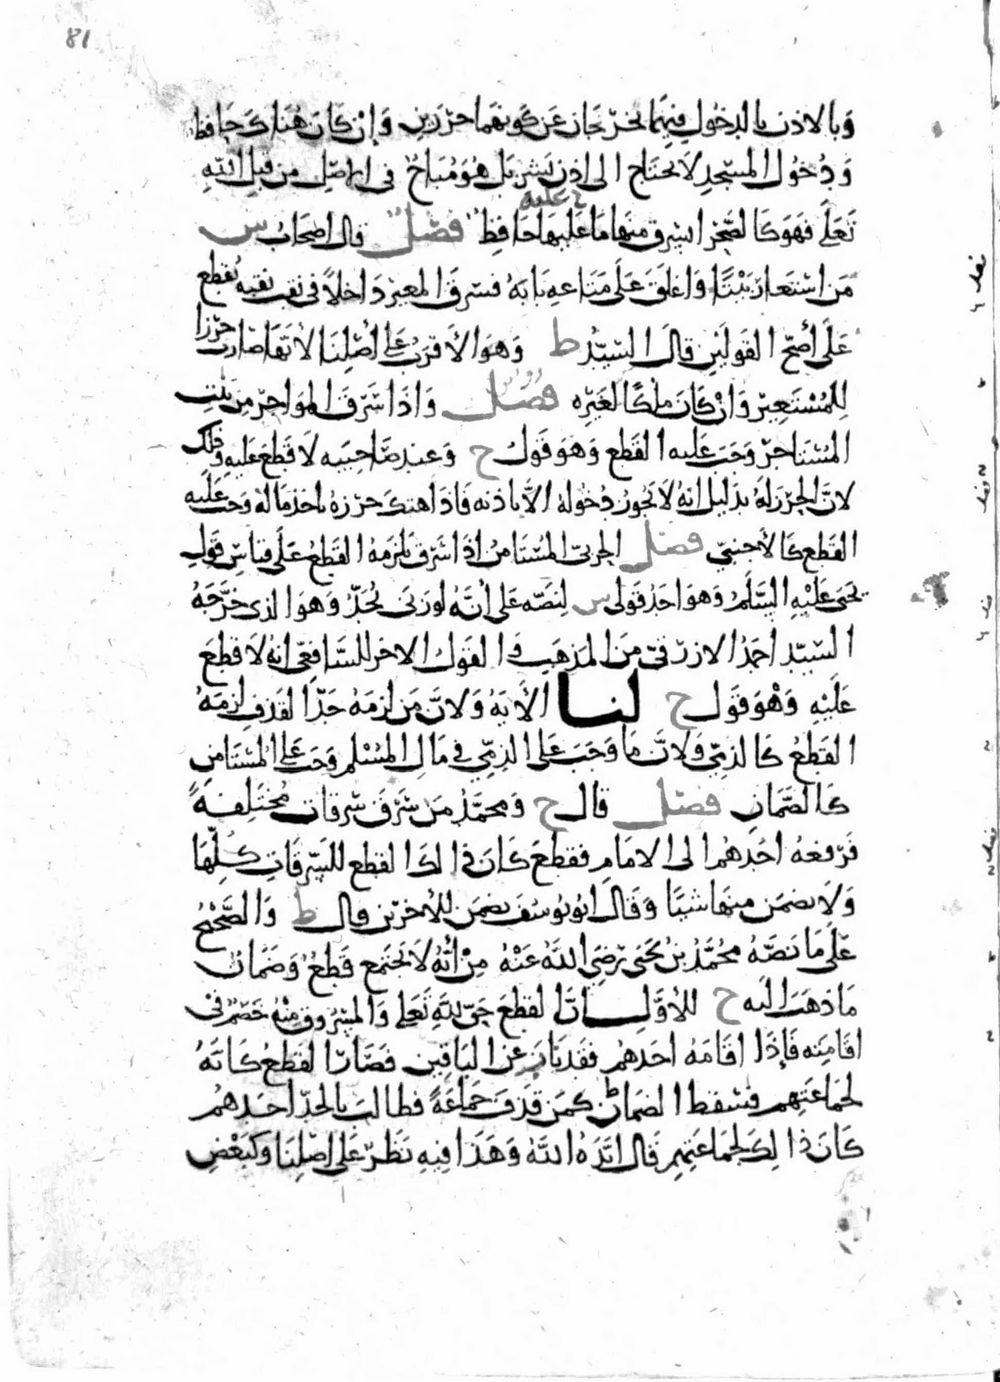 81
وَبالاذن بالدخُول فِيهَما تخرّجان عَن كَونهما حرْزين وَإنْ كَانَ هُنَاكَ حَافظ
وَدُخُول المسْجدِ لَا يحتَاج الى اذن بَشرٍ بَل هُوَ مُبَاحٌ فى الاصْل من قِبَل اللّٰهِ
تَعَلَى فَهَوَ كَالصّحْرا يسْرق منهَا مَا عَليهَا حَافِظ فصْل قال اصْحَابُ س
ح عليه
مَن اسْتَعارَ بَيْتًا وَاغلقَ عَلَى مَتَاعهِ بَابَهُ فسرقَ المعيرْ دَاخلاً فى نقب نقبه يُقطع
عَلَى أصَحّ القَولَين قالَ السّيّدُ ط وَهوَ الأَقرَبُ عَلى أصْلِنَا لأنّهَا صَارت حرْزا
لِلمُسْتَعِيْر وَانْ كَانَ ملْكًا لغَيْره فصْل وَاذَا سَرَقَ المواجرْ من بَيْتِ
المسْتَاجرْ وَجَبَ عَليه القَطع وَهوَ قولُ ح وَعند صَاحبَيه لَا قَطعَ عَليهِ وَذلك
لانّ الحِرْزَ لهُ بدَليْل انهُ لَا يَجوز دُخولهُ الّا باذنه فاذَا هتكَ حرْزهُ باخذ مَالهُ وَجبَ عَلَيه
القَطع كَالأجنبيّ فصْل الحربىّ المسْتَامنُ اذَا سَرق يَلزمهُ القَطعُ عَلَى قياسِ قَولِ
يحَيى عَلَيْهِ السَّلَمُ وَهوَ احَدُ قَولى س لِنَصّه عَلى أنّهُ لَو زنَى يُحَدُّ وَهوَ الذى خَرَّجَهُ
السّيّد احمَدُ الازرَقى مِنَ المذهَب وَالقَولُ الاخر للشّافِعى انهُ لَا قَطعَ
عَلَيْهِ وَهْوَ قَول ح لنا الأيَهُ وَلانّ مَن لَزمَهُ حَدّ القَذفِ لَزمَهُ
القَطعُ كَالذمّي وَلانّ مَا وَجبَ عَلى الذمّيِ في مَالِ المُسْلم وَجَبَ عَلى المسْتَامِن
كَالضَّمَانِ فصْل قال ح وَمحمَّدٌ مَن سَرَقَ سَرقات مُختَلِفَةً
فَرَفعهُ احَدُهمُ الى الامَامِ فقطعَ كَانَ ذَالكَ القَطع للسّرقَات كُلّهَا
وَلَا يَضمَن منهَا شيئًا وَقَال ابُو يوسُفَ يضمَن للأخرْين قال ط وَالصَّحِيْحُ
عَلَى مَا نَصَّهُ محُمَّدُ بنُ يحَيَى رَضِيَ اللّٰهُ عَنْهُ مِنْ أنَّهُ لَا يَجتَمع قَطْعٌ وَضَمَانٌ
مَا ذهَبَ اليه ح للأوَّل انَّ القَطعَ حَقّ للّٰهِ تَعَلى وَالمسْرُوق منْهُ خَصْمٌ فى
اقَامَته فَإذَا اقَامَهُ احَدهُم فقَد نَابَ عَن البَاقين فصَارَ القَطعُ كَانّهُ
لجمَاعَتِهم فسْقط الضمَان كمَن قذفَ جَمَاعَةً فطالبَ بالحدّ احَدهُم
كَانَ ذالِكَ لجمَاعَتِهِم قَالَ ايَّدَهُ اللّٰهُ وَهَذَا فيهِ نظرٌ عَلى اصْلِنَا وَكبَعْض